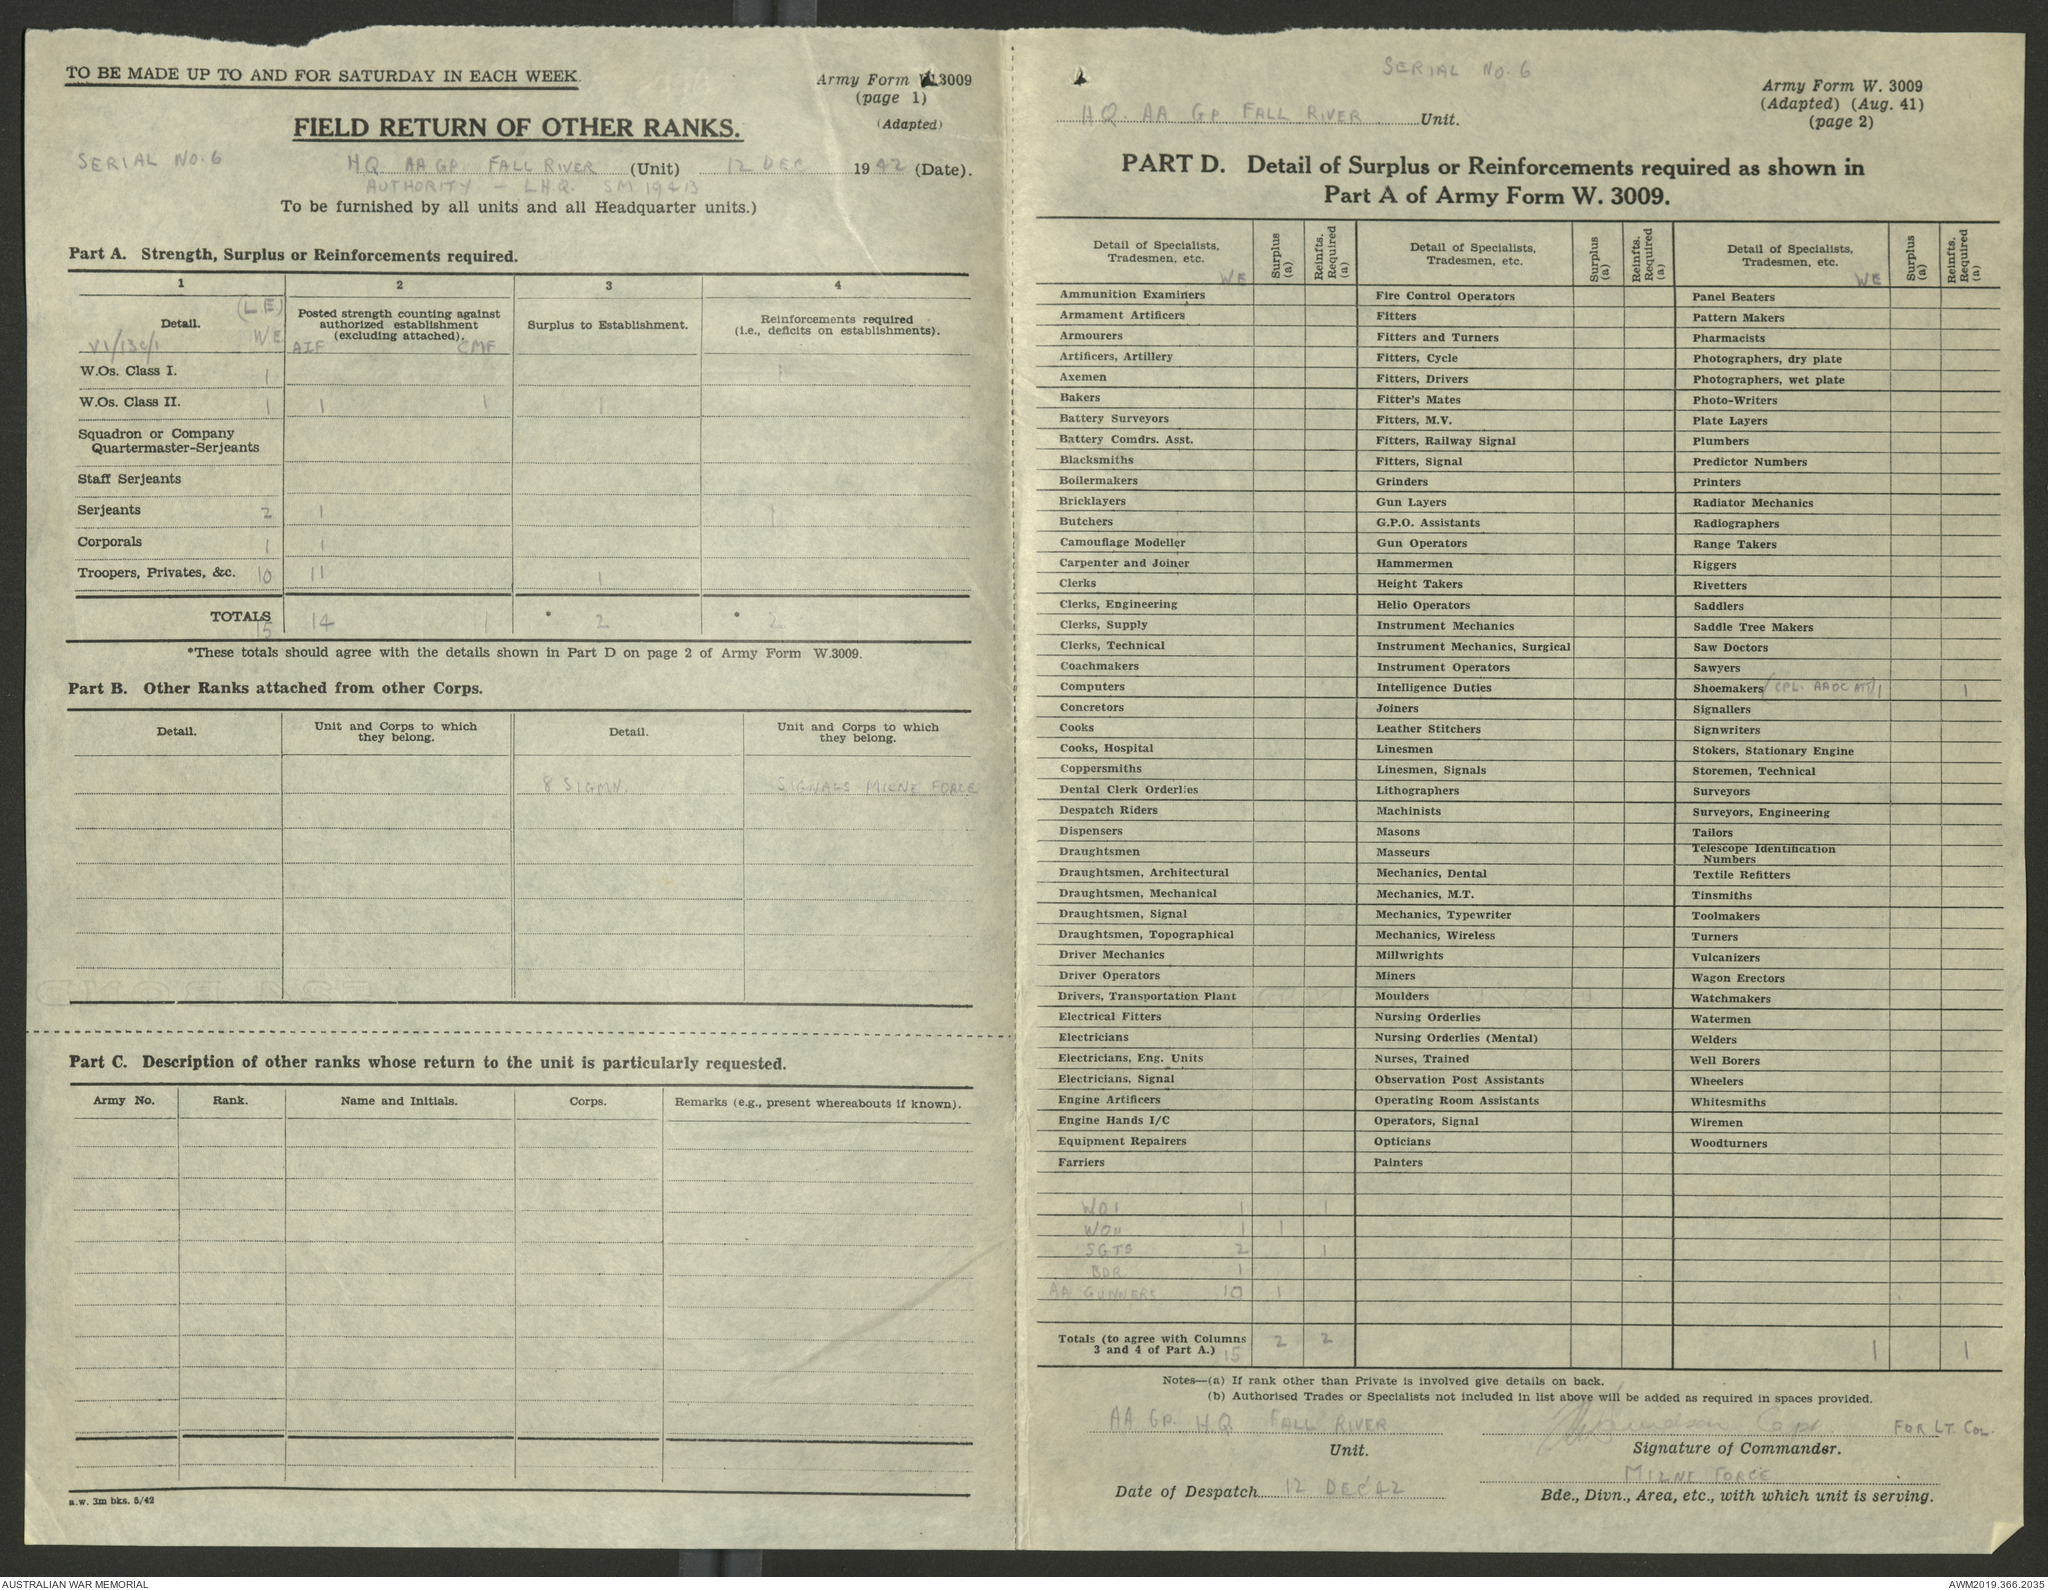 TO BE MADE UP TO AND FOR SATURDAY IN EACH WEEK.
Army Form W.3009
(page 1)
(Adapted)
FIELD RETURN OF OTHER RANKS.
SERIAL NO. 6
HQ AA GP. FALL RIVER (Unit) 12 DEC 1942 (Date).
AUTHORITY - L.H.Q. SM 19413
To be furnished by all units and all Headquarter units.)
Part A. Strength, Surplus or Reinforcements required.
1 2 3 4
(L.E)
Detail. WE
VI/13c/1
Posted strength counting against
authorized establishment
(excluding attached).
AIF CMF
Surplus to Establishment.
Reinforcements required
(i.e., deficits on establishments).
W.Os. Class I. 1 1
W.Os. Class II. 1 1 1 1
Squadron or Company
Quartermaster-Serjeants
Staff Serjeants
Serjeants 2 1 1
Corporals 1 1
Troopers, Privates, &c. 10 11 1
TOTALS 15 14 1 * 2 * 2
*These totals should agree with the details shown in Part D on page 2 of Army Form W.3009.
Part B. Other Ranks attached from other Corps.
Detail. Unit and Corps to which they belong. Detail. Unit and Corps to which they belong.
8 SIGMN. SIGNALS MILNE FORCE
Part C. Description of other ranks whose return to the unit is particularly requested.
Army No. Rank. Name and Initials. Corps. Remarks (e.g., present whereabouts if known).
a.w. 3m bks. 5/42
SERIAL NO. 6
Army Form W. 3009
(Adapted) (Aug. 41)
(page 2)
HQ. AA GP. FALL RIVER Unit.
PART D. Detail of Surplus or Reinforcements required as shown in
Part A of Army Form W. 3009.
Detail of Specialists, Tradesmen, etc. WE
Surplus (a)
Reinfts. Required (a)
Detail of Specialists, Tradesmen, etc.
Surplus (a)
Reinfts. Required (a)
Detail of Specialists, Tradesmen, etc. WE
Surplus (a)
Reinfts. Required (a)
Ammunition Examiners Fire Control Operators Panel Beaters
Armament Artificers Fitters Pattern Makers
Armourers Fitters and Turners Pharmacists
Artificers, Artillery Fitters, Cycle Photographers, dry plate
Axemen Fitters, Drivers Photographers, wet plate
Bakers Fitter's Mates Photo-Writers
Battery Surveyors Fitters, M.V. Plate Layers
Battery Comdrs. Asst. Fitters, Railway Signal Plumbers
Blacksmiths Fitters, Signal Predictor Numbers
Boilermakers Grinders Printers
Bricklayers Gun Layers Radiator Mechanics
Butchers G.P.O. Assistants Radiographers
Camouflage Modeller Gun Operators Range Takers
Carpenter and Joiner Hammermen Riggers
Clerks Height Takers Rivetters
Clerks, Engineering Helio Operators Saddlers
Clerks, Supply Instrument Mechanics Saddle Tree Makers
Clerks, Technical Instrument Mechanics, Surgical Saw Doctors
Coachmakers Instrument Operators Sawyers
Computers Intelligence Duties Shoemakers (CPL. AAOC ATT) 1 1
Concretors Joiners Signallers
Cooks Leather Stitchers Signwriters
Cooks, Hospital Linesmen Stokers, Stationary Engine
Coppersmiths Linesmen, Signals Storemen, Technical
Dental Clerk Orderlies Lithographers Surveyors
Despatch Riders Machinists Surveyors, Engineering
Dispensers Masons Tailors
Draughtsmen Masseurs Telescope Identification Numbers
Draughtsmen, Architectural Mechanics, Dental Textile Refitters
Draughtsmen, Mechanical Mechanics, M.T. Tinsmiths
Draughtsmen, Signal Mechanics, Typewriter Toolmakers
Draughtsmen, Topographical Mechanics, Wireless Turners
Driver Mechanics Millwrights Vulcanizers
Driver Operators Miners Wagon Erectors
Drivers, Transportation Plant Moulders Watchmakers
Electrical Fitters Nursing Orderlies Watermen
Electricians Nursing Orderlies (Mental) Welders
Electricians, Eng. Units Nurses, Trained Well Borers
Electricians, Signal Observation Post Assistants Wheelers
Engine Artificers Operating Room Assistants Whitesmiths
Engine Hands I/C Operators, Signal Wiremen
Equipment Repairers Opticians Woodturners
Farriers Painters
WO1 1 1
WOII 1 1
SGTS 2 1
BDR 1
AA GUNNERS 10 1
Totals (to agree with Columns
3 and 4 of Part A.) 15 2 2 1 1
Notes—(a) If rank other than Private is involved give details on back.
(b) Authorised Trades or Specialists not included in list above will be added as required in spaces provided.
AA GP. H.Q. FALL RIVER
Unit.
Capt. FOR LT. COL.
Signature of Commander.
Date of Despatch 12 DEC '42
MILNE FORCE
Bde., Divn., Area, etc., with which unit is serving.
AUSTRALIAN WAR MEMORIAL
AWM2019.366.2035